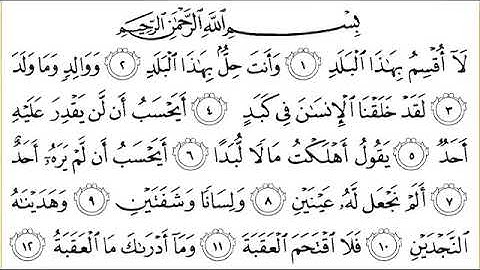 بِسْمِ اللَّهِ الرَّحْمَٰنِ الرَّحِيمِ
لَآ أُقْسِمُ بِهَٰذَا الْبَلَدِ ١ وَأَنتَ حِلٌّۢ بِهَٰذَا الْبَلَدِ ٢ وَوَالِدٍ وَمَا وَلَدَ
٣ لَقَدْ خَلَقْنَا الْإِنسَٰنَ فِى كَبَدٍ ٤ أَيَحْسَبُ أَن لَّن يَقْدِرَ عَلَيْهِ
أَحَدٌ ٥ يَقُولُ أَهْلَكْتُ مَالًا لُّبَدًا ٦ أَيَحْسَبُ أَن لَّمْ يَرَهُۥٓ أَحَدٌ
٧ أَلَمْ نَجْعَل لَّهُۥ عَيْنَيْنِ ٨ وَلِسَانًا وَشَفَتَيْنِ ٩ وَهَدَيْنَٰهُ
النَّجْدَيْنِ ١٠ فَلَا اقْتَحَمَ الْعَقَبَةَ ١١ وَمَآ أَدْرَىٰكَ مَا الْعَقَبَةُ ١٢